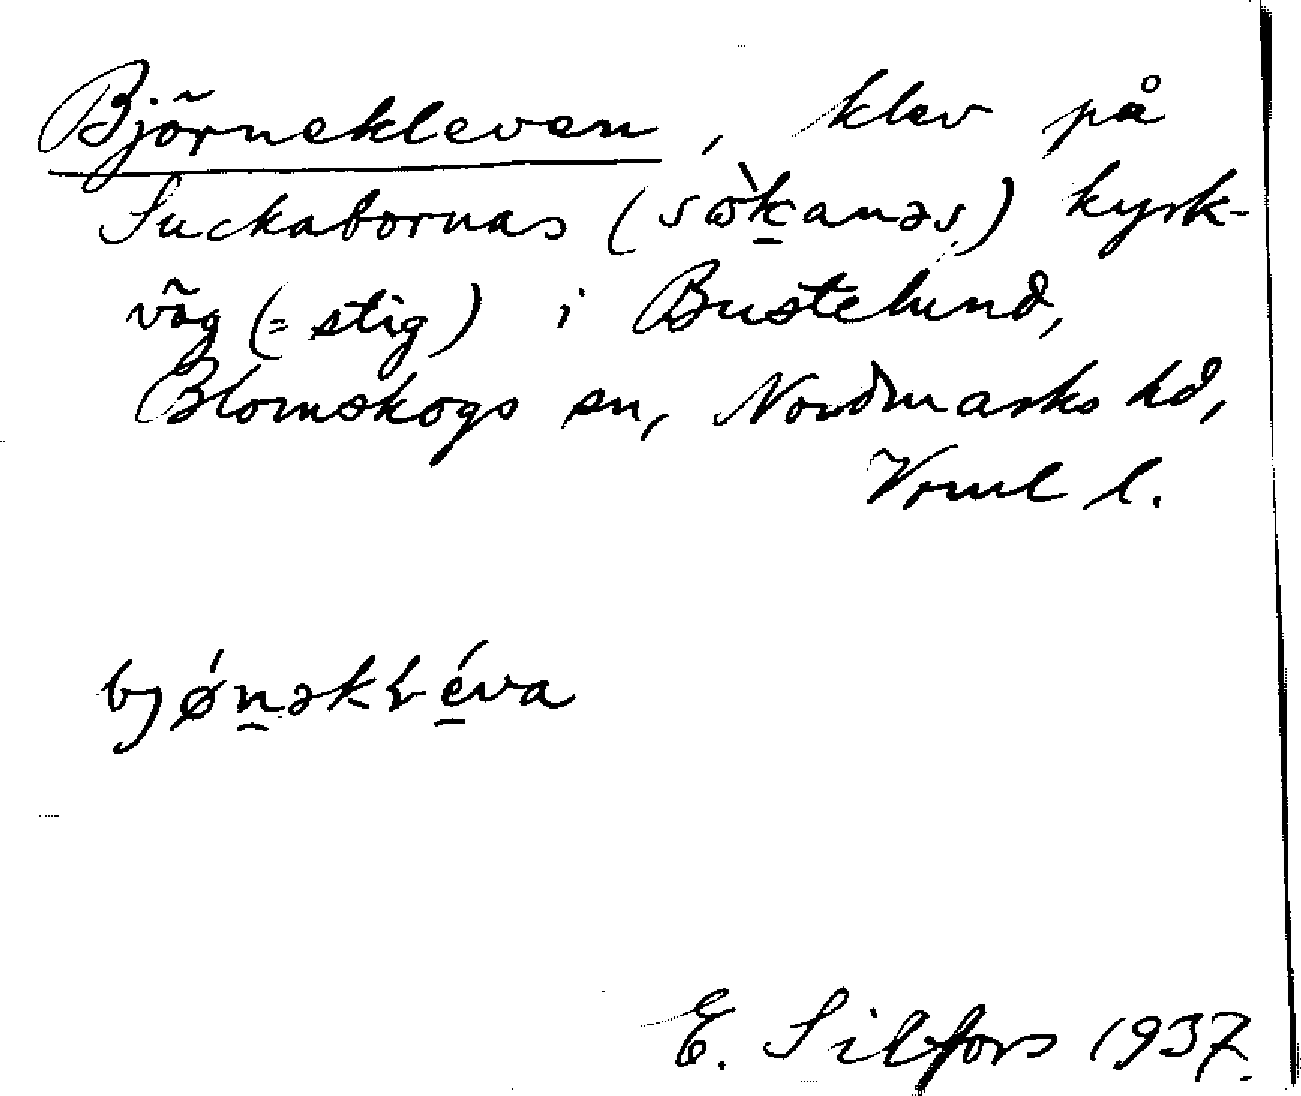 Björnekleven, klev på
Suckabornas (sɷ̀k̠anəs) kyrk-
väg (= stig) i Bustelund,
Blomskogs sn, Nordmarks hd,
Vrml l.
bjǿn̠əkɫé̠va
E. Silfors 1937.